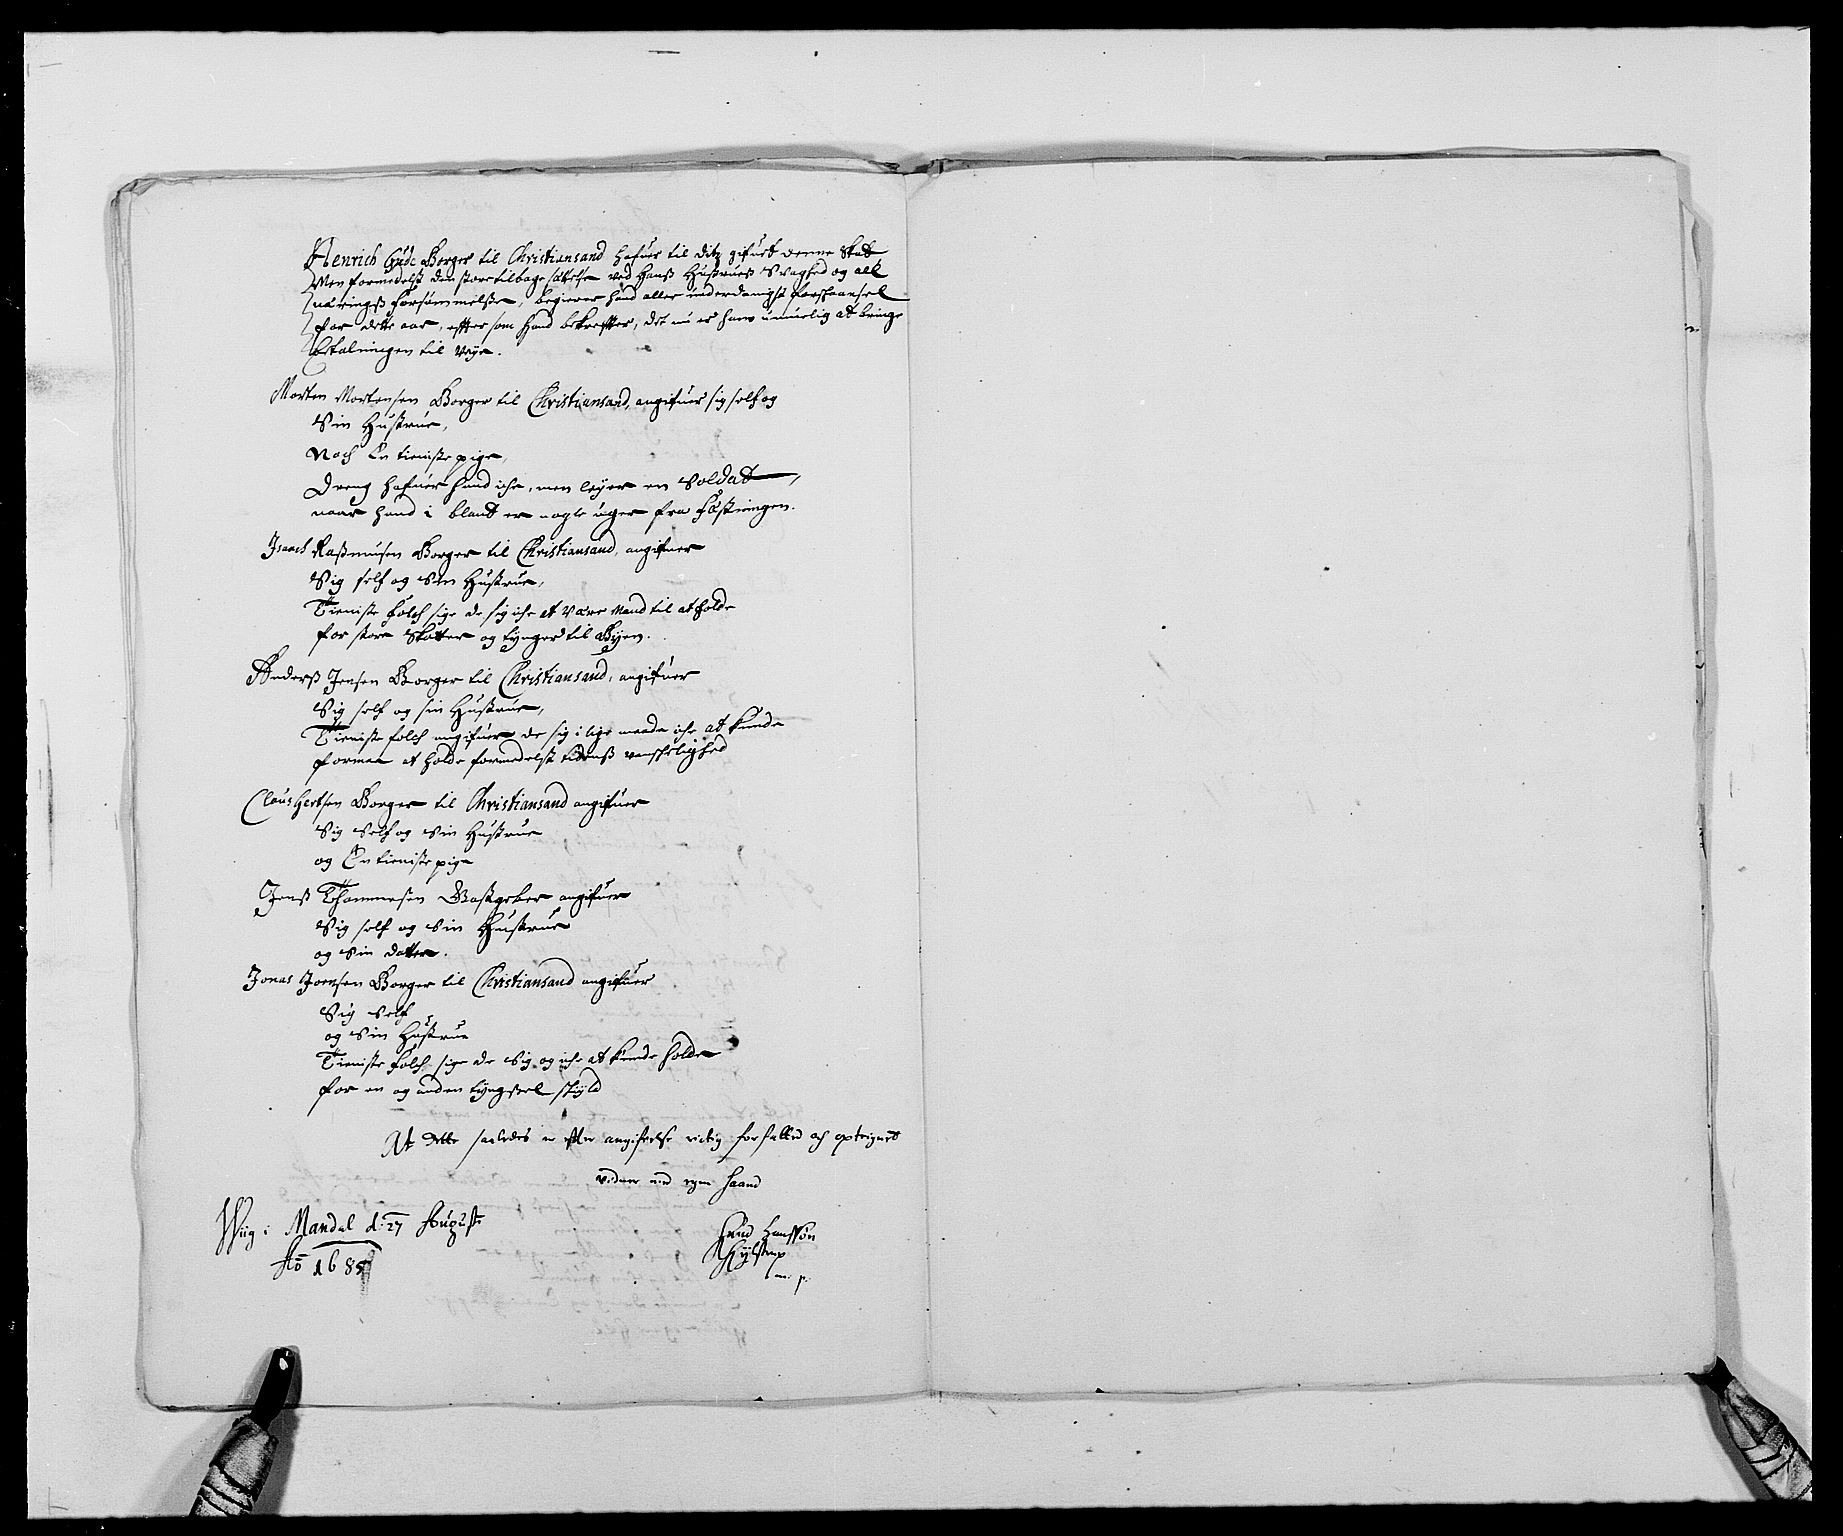 Henrich Gude Borger til Christiansand hafuer til ditz gifuet denne Skatt
Men formedelst den store tilbage settelse ved Hanß Hustrues Svaghed og all
næringß forsømmelse, begierer hand aller underdanigst forskaansel
for dette aar, efftersom hand bekreffter, det nu er ham umuelig at bringe
betalningen til veye.
Morten Mortensen Borger til Christiansand, angifuer sig self og
Sin Hustrue,
Noch En tieniste pige,
Dreng hafuer hand iche, men leyer en Soldat,
naar hand i blant er nogle uger fra Festningen.
Isaach Raßmusen Borger til Christiansand, angifuer
Sig self og Sin Hustrue,
Tieniste folch sige de sig iche at være Mand til at holde
for store Skatter og tynger til Byen.
Anderß Jensen Borger til Christiansand, angifuer
Sig self og sin Hustrue,
Tieniste folch angifuer de sig i lige maade iche at kunde
formaa at holde formedelst tidenß vanskelighed
Claus Hertsen Borger til Christiansand angifuer
Sig Self og Sin Hustrue
og En tieniste pige
Jenß Thommesen Gastgeber angifuer
Sig self og Sin Hustrue
og Sin datter.
Jonas Joensen Borger til Christiansand angifuer
Sig Self
og Sin Hustrue
Tieniste folch sige de Sig og iche at kunde holde
for en og anden tyngsel skyld
At dette saaledes er effter angifuelse rictig forfatted och opteignet
vidner med egen haand
Wiig i Mandal d: 27 August
Ao 1685
Hanssøn
m: p: